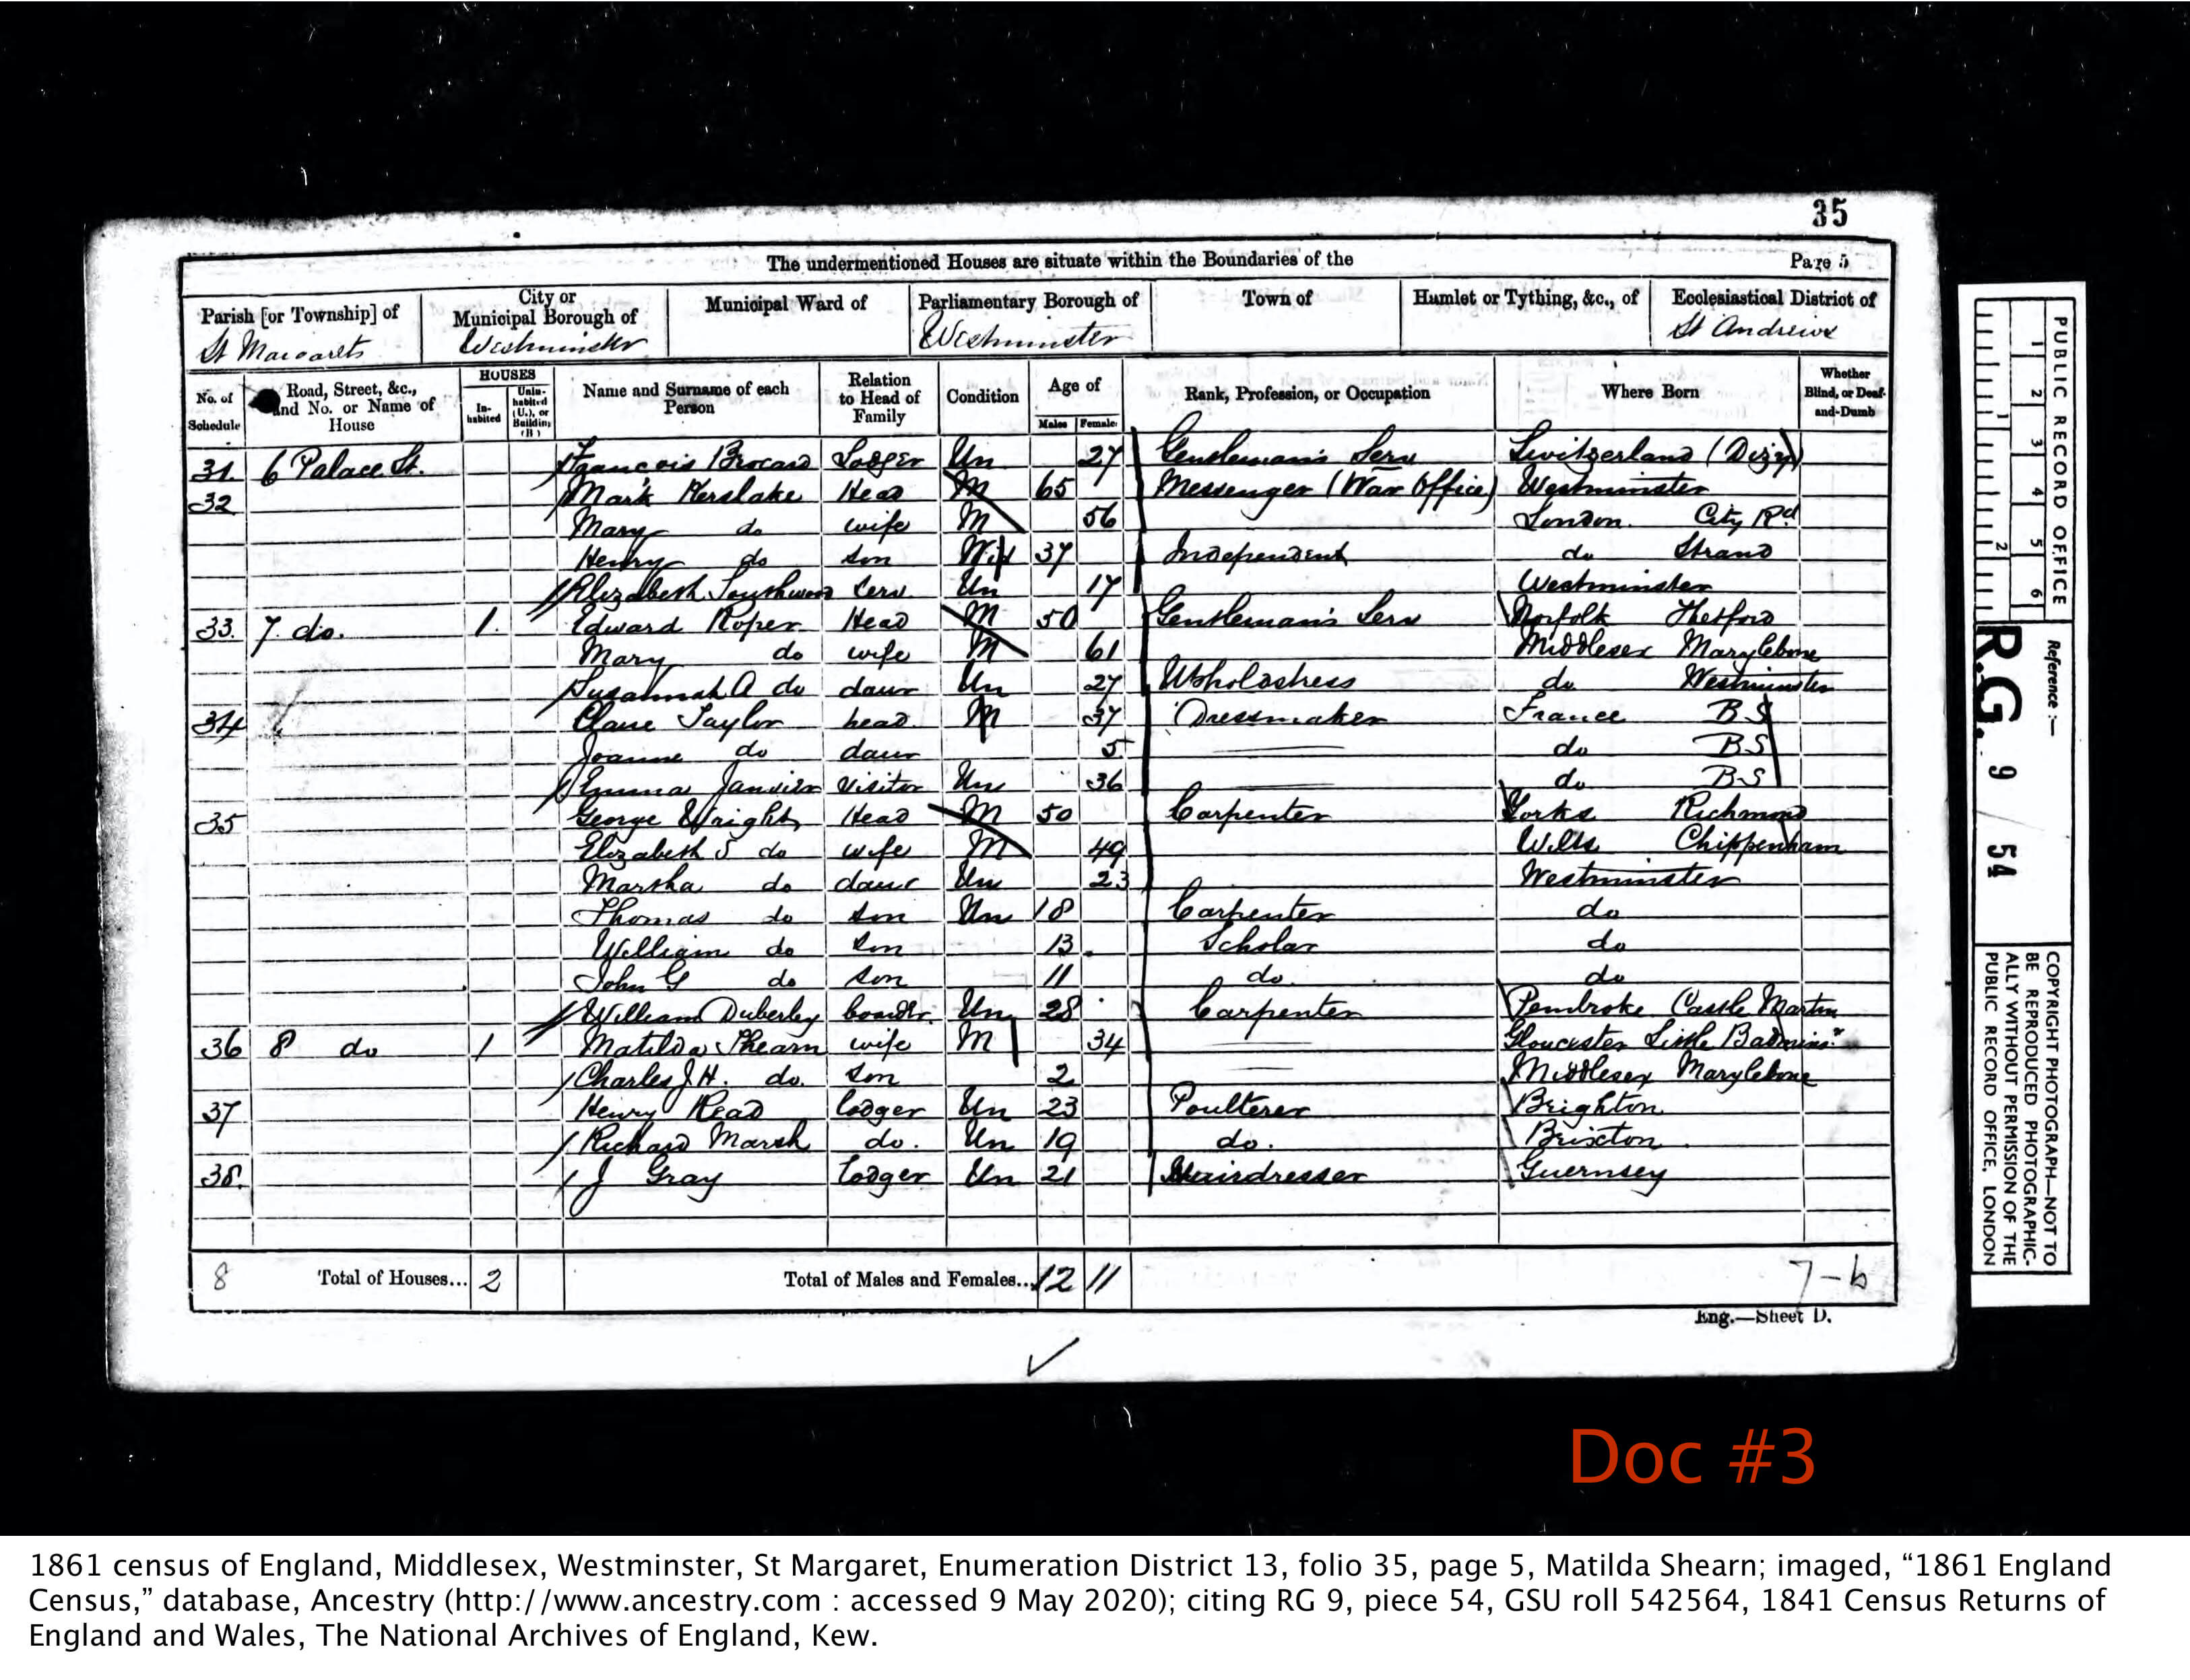 35
The undermentioned Houses are situate within the Boundaries of the Page 5
Parish [or Township] of
St Margarets
City or Municipal Borough of
Westminster
Municipal Ward of
Parliamentary Borough of
Westminster
Town of
Hamlet or Tything, &c., of
Ecclesiastical District of
St Andrews
No. of Schedule
Road, Street, &c., and No. or Name of House
HOUSES
In-habited
Unin-habited (U.), or Building (B)
Name and Surname of each Person
Relation to Head of Family
Condition
Age of
Males Females
Rank, Profession, or Occupation
Where Born
Whether Blind, or Deaf-and-Dumb
31. 6 Palace St. Francois Brocard Lodger Un 27 Gentleman's Serv Switzerland (Dizy)
32 Mark Kerslake Head M 65 Messenger (War Office) Westminster
Mary do wife M 56 London City Rd
Henry do son Wid 37 Independent do Strand
Elizabeth Southwood Serv Un 17 Westminster
33. 7 do. 1. Edward Roper Head M 50 Gentleman's Serv Norfolk Thetford
Mary do wife M 61 Middlesex Marylebone
Susannah A do daur Un 27 Upholstress do Westminster
34 Clare Taylor head M 37 Dressmaker France B S
Joanne do daur 5 do B S
Emma Janvier Visitor Un 36 do B S
35 George Wright Head M 50 Carpenter Yorks Richmond
Elizabeth S do wife M 49 Wilts Chippenham
Martha do daur Un 23 Westminster
Thomas do son Un 18 Carpenter do
William do son 13 Scholar do
John G do son 11 do do
William Duberley boardr. Un 28 Carpenter Pembroke Castle Martin
36 8 do 1 Matilda Shearn wife M 34 Gloucester Little Badmin
Charles J H. do. son 2 Middlesex Marylebone
37 Henry Read lodger Un 23 Poulterer Brighton
Richard Marsh do. Un 19 do. Brixton
38. J Gray Lodger Un 21 Hairdresser Guernsey
8 Total of Houses... 2 Total of Males and Females... 12 11 7-6
Eng.—Sheet D.
PUBLIC RECORD OFFICE
1 2 3 4 5 6
1 2
Reference :—
R.G. 9 54
COPYRIGHT PHOTOGRAPH—NOT TO
BE REPRODUCED PHOTOGRAPHIC-
ALLY WITHOUT PERMISSION OF THE
PUBLIC RECORD OFFICE, LONDON
Doc #3
1861 census of England, Middlesex, Westminster, St Margaret, Enumeration District 13, folio 35, page 5, Matilda Shearn; imaged, “1861 England
Census,” database, Ancestry (http://www.ancestry.com : accessed 9 May 2020); citing RG 9, piece 54, GSU roll 542564, 1841 Census Returns of
England and Wales, The National Archives of England, Kew.